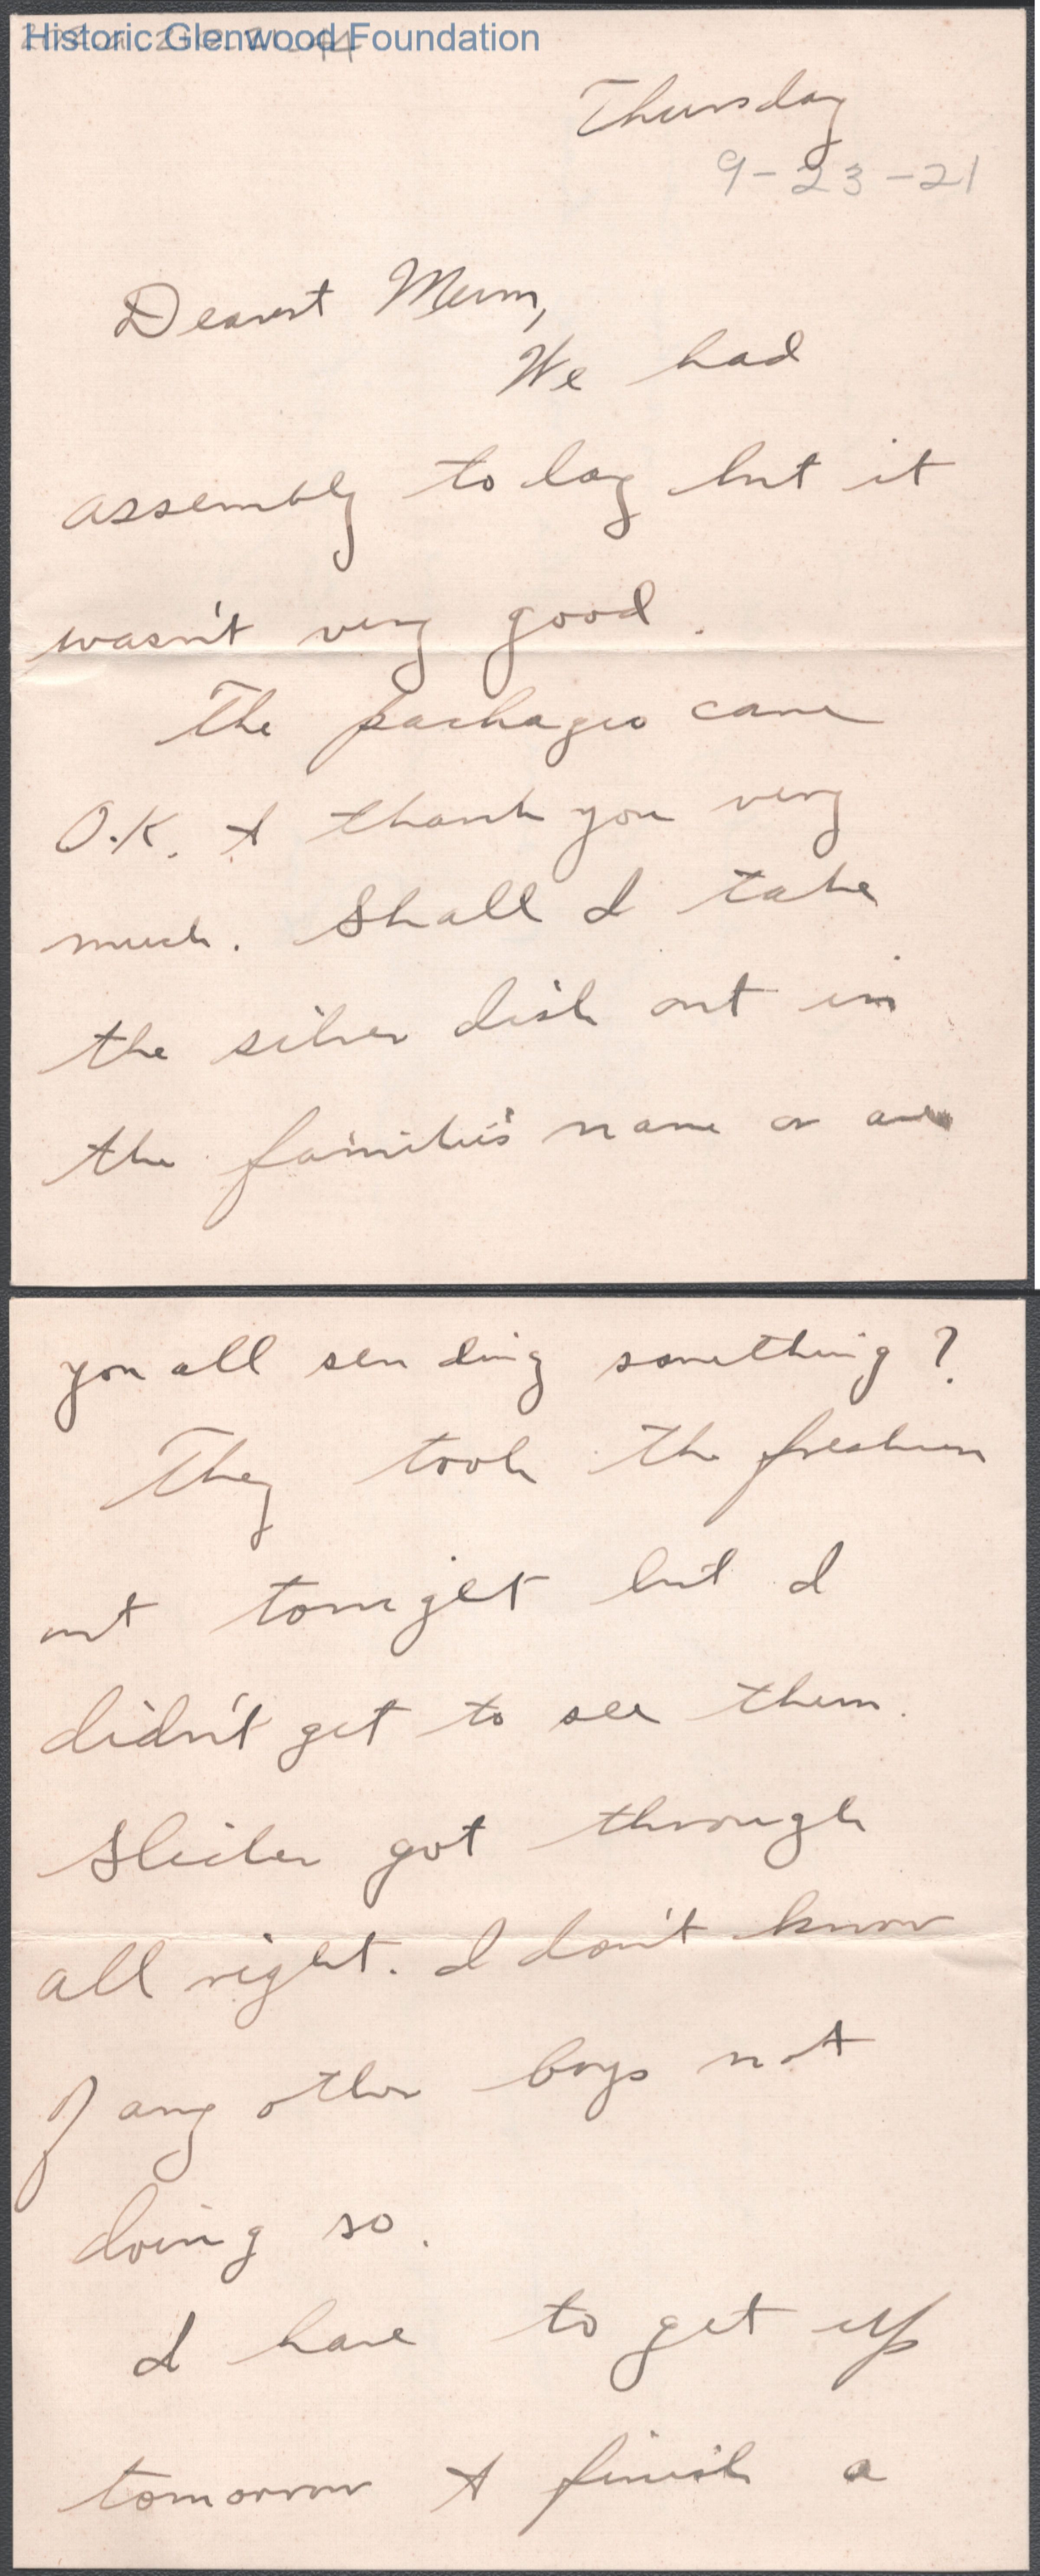 Historic Glenwood Foundation
Thursday
9-23-21
Dearest Mum,
We had
assembly to day but it
wasn't very good.
The packages came
O.K. & thank you very
much. Shall I take
the silver dish out in
the families' name or are
you all sending something?
They took the freshmen
out tonight but I
didn't get to see them.
got through
all right. I don't know
of any other boys not
doing so.
I have to get up
tomorrow & finish a